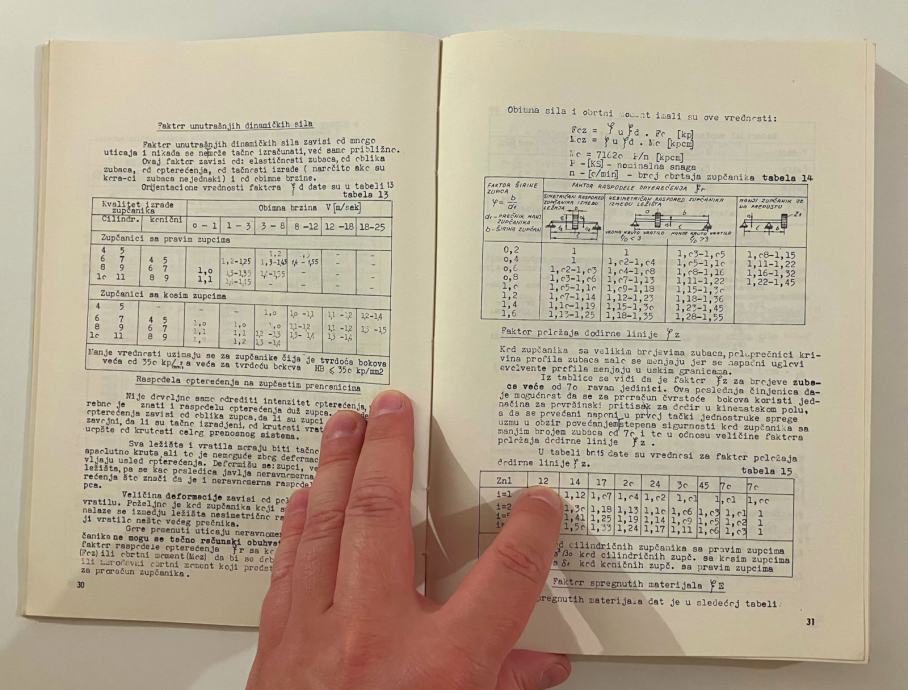 Fakter unutrašnjih dinamičkih sila
Fakter unutrašnjih dinamičkih sila zavisi od mnogo
uticaja i nikada se nemože tačno izračunati, već samo približno.
Ovaj fakter zavisi od: elastičnosti zubaca, od oblika
zubaca, od opterećenja, od tačnosti izrade ( naročito ako su
kora-ci zubaca nejednaki) i od obimne brzine.
Orjentacione vrednosti faktora ξd date su u tabeli 13
tabela 13
Kvalitet izrade zupčanika Obimna brzina V [m/sek]
Cilindr. konični 0 – 1 1 – 3 3 – 8 8 –12 12 –18 18-25
Zupčanici sa pravim zupcima
4 5
6 7 4 5
8 9 6 7
1o 11 8 9
Zupčanici sa kosim zupcima
4 5
6 7 4 5
8 9 6 7
1o 11 8 9
Manje vrednosti uzimaju se za zupčanike čija je tvrdoća bokova
veća od 35o kp/mm, a veće za tvrdoću bokova HB ≤ 35o kp/mm2
Raspodela opterećenja na zupčastim prenosnicima
Nije dovoljno samo odrediti intenzitet opterećenja,
rebno je znati i raspodelu opterećenja duž zupca.
opterećenja zavisi od oblika zubaca, da li su zupci
zavojni, da li su tačno izrađeni, od krutosti vrat
uopšte od krutosti celog prenosnog sistema.
Sva ležišta i vratila moraju biti tačno
apsolutno kruta, ali to je nemoguće zbog deformac
vljaju usled opterećenja. Deformišu se: zupci, ve
ležišta, pa se kao posledica javlja neravnomerna
rećenja što znači da je i neravnomerna raspodel
pca.
Veličina deformacije zavisi od pol
vratilu. Poželjno je kod zupčanika koji s
nalaze se između ležišta nesimetrično ra
ji vratilo nešto većeg prečnika.
Gore pomenuti uticaji neravnomern
čanika ne mogu se tačno računski obuhvat
faktor raspodele opterećenja ξr sa ko
(Fcz) ili obrtni moment (Mcz) da bi se dob
ili merodavni obrtni moment koji predst
za proračun zupčanika.
30
Obimna sila i obrtni moment imali su ove vrednosti:
Fcz = ξu ξd . Fc [kp]
Mcz = ξu ξd . Mc [kpcm]
Mc = 7162o P/n [kpcm]
P -[KS] - nominalna snaga
n - [o/min] - broj obrtaja zupčanika tabela 14
FAKTOR ŠIRINE ZUPCA FAKTOR RASPODELE OPTEREĆENJA ξr
φ = b/d₁
d₁ - PREČNIK MANJ. ZUPČANIKA
b - ŠIRINA ZUPČAN.
SIMETRIČAN RASPORED ZUPČANIKA IZMEĐU LEŽIŠTA
NESIMETRIČAN RASPORED ZUPČANIKA IZMEĐU LEŽIŠTA
MANJI ZUPČANIK JE NA PREPUSTU
VEOMA KRUTO VRATILO MANJE KRUTO VRATILO
0,2 1 1 1,o3-1,o5 1,o8-1,15
0,4 1 1,o2-1,o4 1,o5-1,1o 1,11-1,22
0,6 1,o2-1,o3 1,o4-1,o8 1,o8-1,16 1,16-1,32
0,8 1,o3-1,o6 1,o7-1,13 1,11-1,22 1,22-1,45
1,o 1,o5-1,1o 1,o9-1,18 1,15-1,3o
1,2 1,o7-1,14 1,12-1,23 1,18-1,36
1,4 1,1o-1,19 1,15-1,3o 1,23-1,45
1,6 1,13-1,25 1,18-1,35 1,28-1,55
Faktor položaja dodirne linije ξz
Kod zupčanika sa velikim brojevima zubaca, poluprečnici kri-
vina profila zubaca malo se menjaju jer se napadni uglovi
evolvente profila menjaju u uskim granicama.
Iz tablice se vidi da je fakter ξz za brojeve zuba-
ca veće od 7o ravan jedinici. Ova poslednja činjenica da-
je mogućnost da se za proračun čvrstoće bokova koristi jed-
načina za površinski pritisak za dodir u kinematskom polu,
a da se povećani naponi u prvoj tački jednostruke sprege
uzmu u obzir povećanjem stepena sigurnosti kod zupčanika sa
manjim brojem zubaca od 7o i to u odnosu veličine faktora
položaja dodirne linije ξz .
U tabeli br.15 date su vrednosi za fakter položaja
dodirne linije ξz.
tabela 15
Zn1 12 14 17 2o 24 3o 45 7o 7o
i=1 1,12 1,o7 1,o4 1,o2 1,o1 1 1,o1 1,oo
i=2 1,3o 1,18 1,13 1,1o 1,o6 1,o3 1,o1 1
1,41 1,25 1,19 1,14 1,o9 1,o5 1,o2 1
1,5o 1,33 1,24 1,17 1,11 1,o6 1,o3 1
cilindričnih zupčanika sa pravim zupcima
kod cilindričnih zupč. sa kosim zupcima
kod koničnih zupč. sa pravim zupcima
Fakter spregnutih materijala ξE
pregnutih materijala dat je u sledećoj tabeli
31